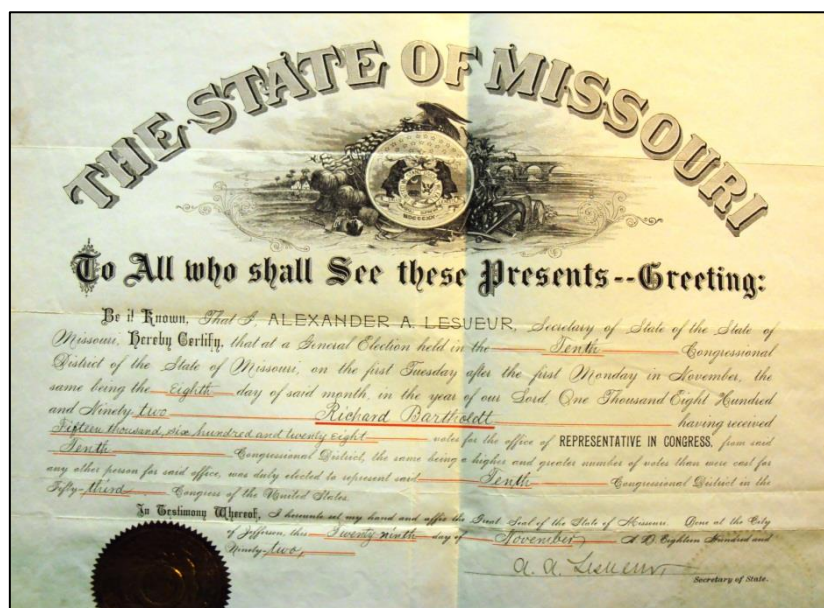 THE STATE OF MISSOURI
To All who shall See these Presents--Greeting:
Be it Known, That I, ALEXANDER A. LESUEUR, Secretary of State of the State of
Missouri, Hereby Certify, that at a General Election held in the Tenth Congressional
District of the State of Missouri, on the first Tuesday after the first Monday in November, the
same being the Eighth day of said month, in the year of our Lord One Thousand Eight Hundred
and Ninety-two Richard Bartholdt having received
Fifteen thousand, six hundred and twenty eight votes for the office of REPRESENTATIVE IN CONGRESS, from said
Tenth Congressional District, the same being a higher and greater number of votes than were cast for
any other person for said office, was duly elected to represent said Tenth Congressional District in the
Fifty-third Congress of the United States.
In Testimony Whereof, I hereunto set my hand and affix the Great Seal of the State of Missouri. Done at the City
of Jefferson, this Twenty ninth day of November A.D. Eighteen Hundred and
Ninety-two,
A. A. Lesueur
Secretary of State.